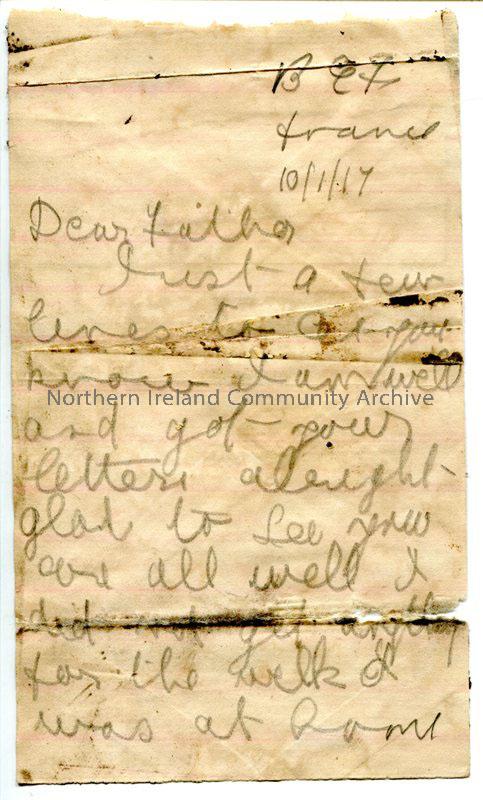 B E F
France
10/1/17
Dear Father
Just a few
lines to let you
know I am well
Northern Ireland Community Archive
and got your
letters alright
glad to see you
are all well I
did not get anything
for the week I
was at home